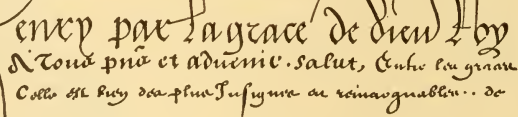 enry par la grace de dieu Roy
A Tous pñs et advenir. Salut, Entre les graces
Celle est bien des plus Insignes et remarquables.. de